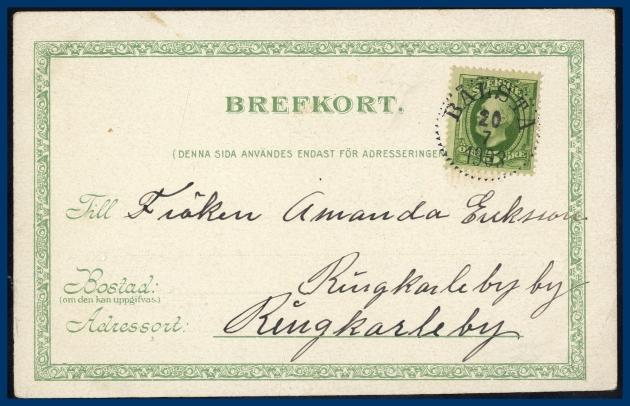 BREFKORT.
BÅLSTA
20
7
1903
ÖRE
(DENNA SIDA ANVÄNDES ENDAST FÖR ADRESSERINGEN
Till Fröken Amanda Eriksson
Ringkarleby by
Bostad:
(om den kan uppgifvas.)
Adressort: Ringkarleby